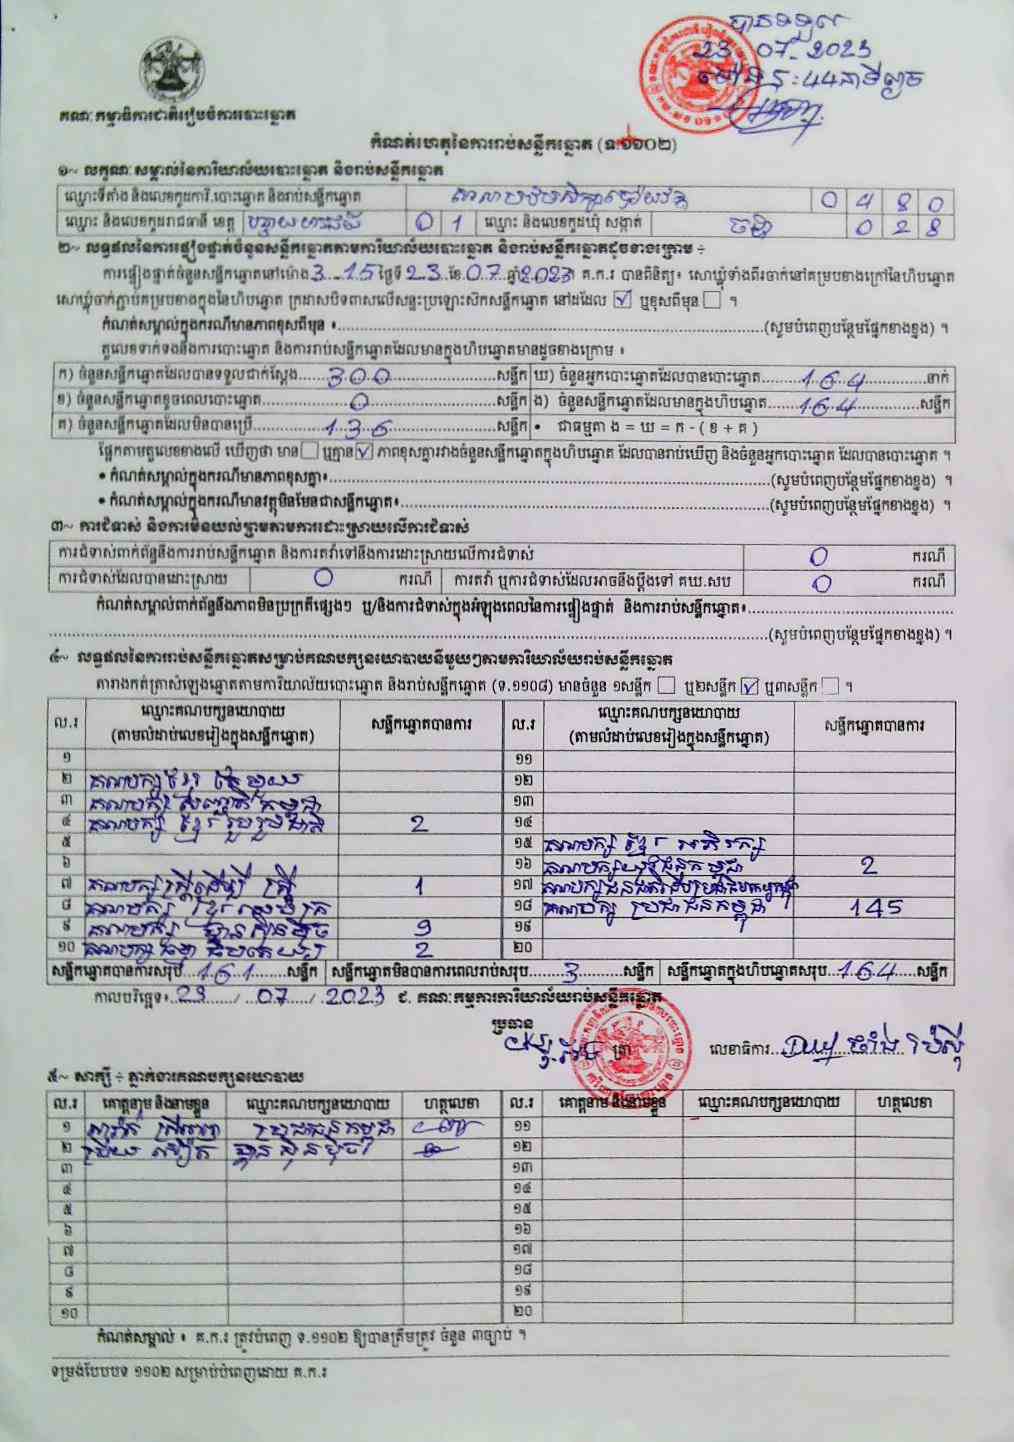 បានទទួល
23 07. 2023
គណៈកម្មាធិការជាតិរៀបចំការបោះឆ្នោត
កំណត់ហេតុនៃការរាប់សន្លឹកឆ្នោត (ទ.១១០២)
១~ លក្ខណៈសម្គាល់នៃការិយាល័យបោះឆ្នោត និងរាប់សន្លឹកឆ្នោត
ឈ្មោះទីតាំង និងលេខកូដការិ.បោះឆ្នោត និងរាប់សន្លឹកឆ្នោត 0 4 8 0
ឈ្មោះ និងលេខកូដរាជធានី ខេត្ត បន្ទាយមានជ័យ 0 1 ឈ្មោះ និងលេខកូដឃុំ សង្កាត់ 0 2 8
២~ លទ្ធផលនៃការផ្ទៀងផ្ទាត់ចំនួនសន្លឹកឆ្នោតតាមការិយាល័យបោះឆ្នោត និងរាប់សន្លឹកឆ្នោតដូចខាងក្រោម ÷
ការផ្ទៀងផ្ទាត់ចំនួនសន្លឹកឆ្នោតនៅម៉ោង 3 15 ថ្ងៃទី 23 ខែ 07 ឆ្នាំ 2023 គ.ក.រ បានពិនិត្យ៖ សោឃ្លុំទាំងពីរចាក់នៅគម្របខាងក្រៅនៃហិបឆ្នោត
សោឃ្លុំចាក់ភ្ជាប់គម្របខាងក្នុងនៃហិបឆ្នោត ក្រដាសបិទពាសលើសន្ទះប្រឡោះសិកសន្លឹកឆ្នោត នៅដដែល ☑ ឬខុសពីមុន ☐ ។
កំណត់សម្គាល់ក្នុងករណីមានភាពខុសពីមុន ៖ (សូមបំពេញបន្ថែមផ្នែកខាងខ្នង) ។
តួលេខទាក់ទងនឹងការបោះឆ្នោត និងការរាប់សន្លឹកឆ្នោតដែលមានក្នុងហិបឆ្នោតមានដូចខាងក្រោម ៖
ក) ចំនួនសន្លឹកឆ្នោតដែលបានទទួលជាក់ស្ដែង 300 សន្លឹក ឃ) ចំនួនអ្នកបោះឆ្នោតដែលបានបោះឆ្នោត 164 នាក់
ខ) ចំនួនសន្លឹកឆ្នោតខូចពេលបោះឆ្នោត 0 សន្លឹក ង) ចំនួនសន្លឹកឆ្នោតដែលមានក្នុងហិបឆ្នោត 164 សន្លឹក
គ) ចំនួនសន្លឹកឆ្នោតដែលមិនបានប្រើ 136 សន្លឹក • ជាធម្មតា ង = ឃ = ក - ( ខ + គ )
ផ្អែកតាមតួលេខខាងលើ ឃើញថា មាន ☐ ឬគ្មាន ☑ ភាពខុសគ្នារវាងចំនួនសន្លឹកឆ្នោតក្នុងហិបឆ្នោត ដែលបានរាប់ឃើញ និងចំនួនអ្នកបោះឆ្នោត ដែលបានបោះឆ្នោត ។
• កំណត់សម្គាល់ក្នុងករណីមានភាពខុសគ្នា៖ (សូមបំពេញបន្ថែមផ្នែកខាងខ្នង) ។
• កំណត់សម្គាល់ក្នុងករណីមានវត្ថុមិនមែនជាសន្លឹកឆ្នោត៖ (សូមបំពេញបន្ថែមផ្នែកខាងខ្នង) ។
៣~ ការជំទាស់ និងការមិនយល់ព្រមតាមការដោះស្រាយលើការជំទាស់
ការជំទាស់ពាក់ព័ន្ធនឹងការរាប់សន្លឹកឆ្នោត និងការតវ៉ាទៅនឹងការដោះស្រាយលើការជំទាស់ 0 ករណី
ការជំទាស់ដែលបានដោះស្រាយ 0 ករណី ការតវ៉ា ឬការជំទាស់ដែលអាចនឹងប្ដឹងទៅ គឃ.សប 0 ករណី
កំណត់សម្គាល់ពាក់ព័ន្ធនឹងភាពមិនប្រក្រតីផ្សេងៗ ឬ/និងការជំទាស់ក្នុងអំឡុងពេលនៃការផ្ទៀងផ្ទាត់ និងការរាប់សន្លឹកឆ្នោត៖
(សូមបំពេញបន្ថែមផ្នែកខាងខ្នង) ។
៤~ លទ្ធផលនៃការរាប់សន្លឹកឆ្នោតសម្រាប់គណបក្សនយោបាយនីមួយៗតាមការិយាល័យរាប់សន្លឹកឆ្នោត
តារាងកត់ត្រាសំឡេងឆ្នោតតាមការិយាល័យបោះឆ្នោត និងរាប់សន្លឹកឆ្នោត (ទ.១១០៨) មានចំនួន ១សន្លឹក ☐ ឬ២សន្លឹក ☑ ឬ៣សន្លឹក ☐ ។
ល.រ ឈ្មោះគណបក្សនយោបាយ (តាមលំដាប់លេខរៀងក្នុងសន្លឹកឆ្នោត) សន្លឹកឆ្នោតបានការ ល.រ ឈ្មោះគណបក្សនយោបាយ (តាមលំដាប់លេខរៀងក្នុងសន្លឹកឆ្នោត) សន្លឹកឆ្នោតបានការ
១ ១១
២ គណបក្ស ខ្មែរ តែមួយ ១២
៣ គណបក្ស សញ្ជាតិ កម្ពុជា ១៣
៤ គណបក្ស ខ្មែរ រួបរួមជាតិ 2 ១៤
៥ ១៥ គណបក្ស ខ្មែរ អភិរក្ស
៦ ១៦ គណបក្ស យុវជនកម្ពុជា 2
៧ គណបក្ស ស្ត្រីដើម្បី ស្ត្រី 1 ១៧
៨ គណបក្ស ១៨ គណបក្ស ប្រជាជនកម្ពុជា 145
៩ គណបក្ស 9 ១៩
១០ គណបក្ស ធម្មាធិបតេយ្យ 2 ២០
សន្លឹកឆ្នោតបានការសរុប 161 សន្លឹក សន្លឹកឆ្នោតមិនបានការពេលរាប់សរុប 3 សន្លឹក សន្លឹកឆ្នោតក្នុងហិបឆ្នោតសរុប 164 សន្លឹក
កាលបរិច្ឆេទ៖ 23 / 07 / 2023 ជ. គណៈកម្មការការិយាល័យរាប់សន្លឹកឆ្នោត
ប្រធាន
ត្រា លេខាធិការ
៥~ សាក្សី ÷ ភ្នាក់ងារគណបក្សនយោបាយ
ល.រ គោត្តនាម និងនាមខ្លួន ឈ្មោះគណបក្សនយោបាយ ហត្ថលេខា ល.រ គោត្តនាម និងនាមខ្លួន ឈ្មោះគណបក្សនយោបាយ ហត្ថលេខា
១ ប្រជាជនកម្ពុជា ១១
២ ១២
៣ ១៣
៤ ១៤
៥ ១៥
៦ ១៦
៧ ១៧
៨ ១៨
៩ ១៩
១០ ២០
កំណត់សម្គាល់ ៖ គ.ក.រ ត្រូវបំពេញ ទ.១១០២ ឱ្យបានត្រឹមត្រូវ ចំនួន ៣ច្បាប់ ។
ទម្រង់បែបបទ ១១០២ សម្រាប់បំពេញដោយ គ.ក.រ